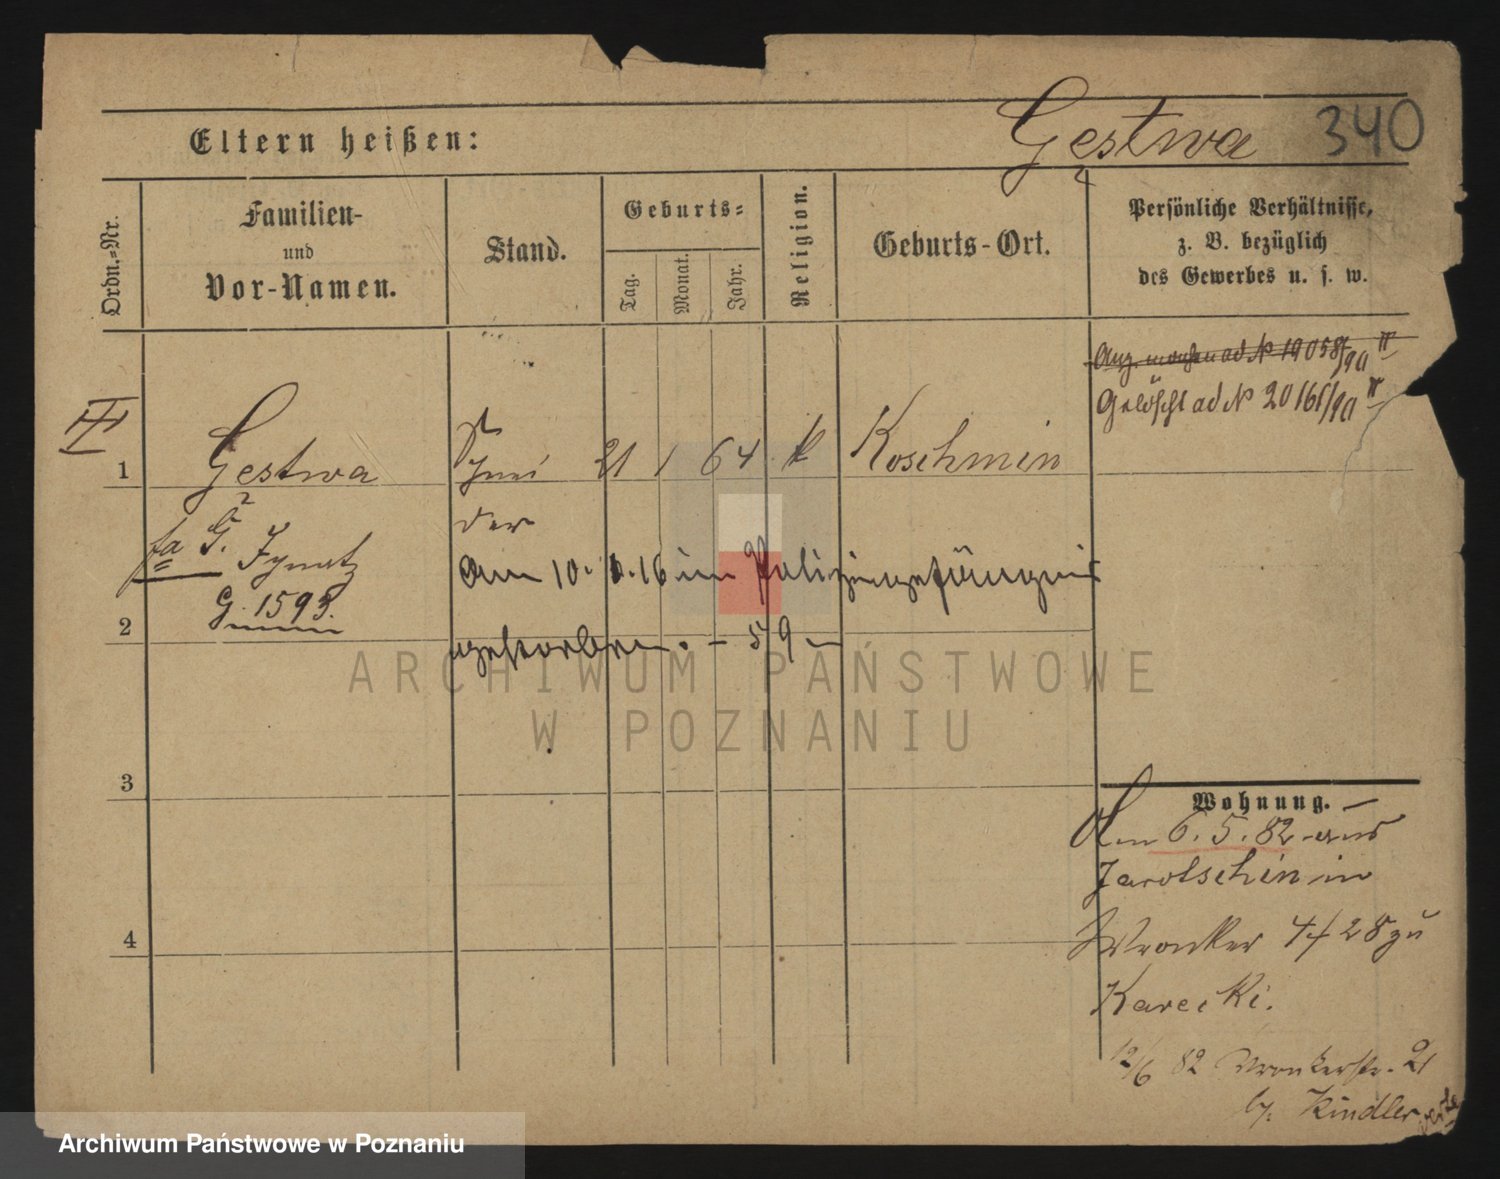 Eltern heißen:
Gestwa
340
Ordn.=Nr.
Familien-
und
Vor-Namen.
Stand.
Geburts=
Tag.
Monat.
Jahr.
Religion.
Geburts-Ort.
Persönliche Verhältnisse,
z. B. bezüglich
des Gewerbes u. s. w.
ad N 19058/90 IV
Gelöscht ad N 20161/90 IV
III
1 Gestwa 21 1 64 k Koschmin
G.
G. 1593.
Am 10. 16 im Polizeigefängnis
2
gestorben. - 59 -
ARCHIWUM PAŃSTWOWE
W POZNANIU
3
Wohnung.
Am 6. 5. 82 aus
Jarotschin in
4
Wronker 4/28 zu
Karecki.
12/6 82 Wronkerstr. 21
by. Kindler
Archiwum Państwowe w Poznaniu